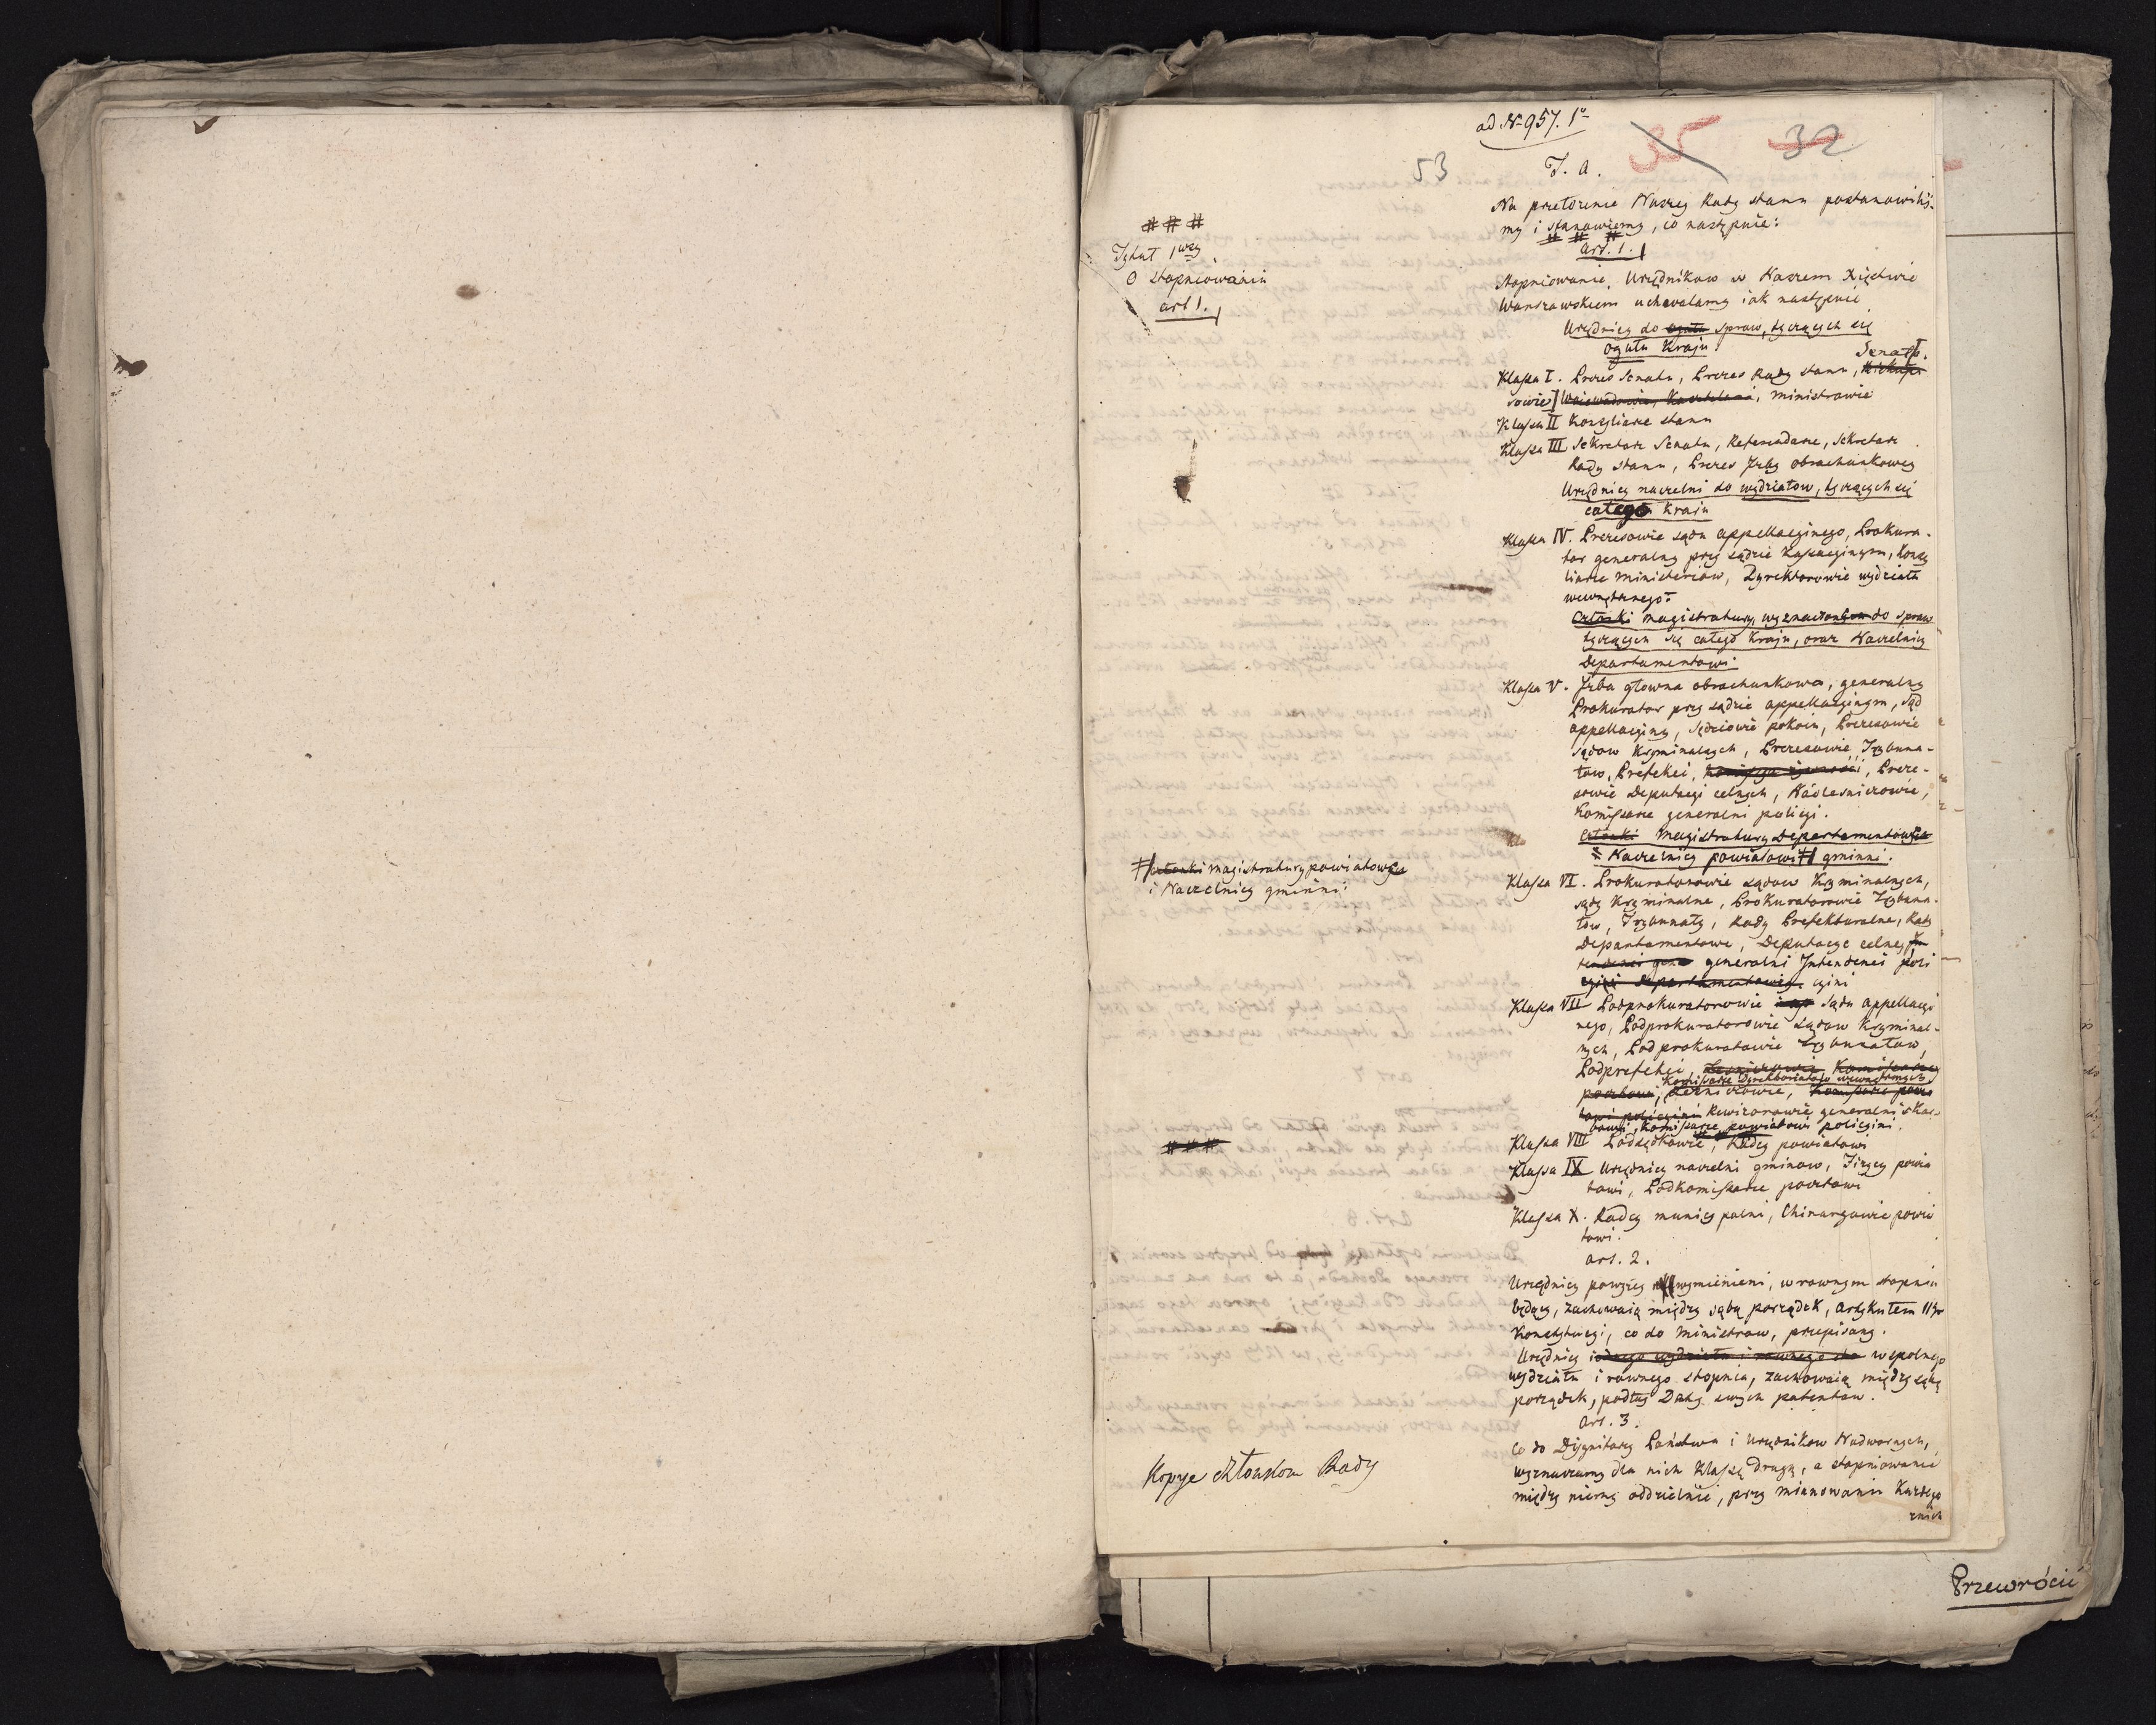 ad No 957. 1o
35 32
53
F. A.
Na przełożenie Naszey Rady stanu postanowiliś-
my i stanowiemy, co następuie:
# # #
# # #
Tytuł 1wszy
O stopniowaniu
art 1.
art. 1.
Stopniowanie Urzędnikow w Naszem Xięstwie
Warszawskiem uchwalamy iak następuie
Urzędnicy do ogułu spraw, tyczących się
ogułu Kraju.
Klassa I. Prezes Senatu, Prezes Rady stanu, Senat
Woiewodowie, Kasztelani, ministrowie
Klassa II Konsyliarze stanu
Klassa III Sekretarz Senatu, Referendarze, Sekretarz
Rady stanu, Prezes Jzby obrachunkowey
Urzędnicy naczelni do wydziałow, tyczących się
całego Kraju
Klassa IV. Prezesowie sądu appellacyinego, Prokura-
tor generalny przy sądzie Kassacyinym, Konsy
liarze ministeriow, Dyrektorowie wydziału
wewnętrznego.
Członki magistratury, wyznaczone do spraw
tyczących się całego Kraju, oraz Naczelnicy
Departamentowi.
Klassa V. Jzba głowna obrachunkowa, generalny
Prokurator przy sądzie appellacyinym, sąd
appellacyiny, sędziowie pokoiu, Prezesowie
sądow Kryminalnych, Prezesowie Trybuna-
łow, Prefekci, , Preze-
sowie Deputacyi celnych, Nadlesniczowie,
Komissarze generalni policyi.
Członki Magistratury Departamentowe
i Naczelnicy powiatowi # gminni.
# członki magistratury powiatowe
i Naczelnicy gminni.
Klassa VI. Prokuratorowie sądow Kryminalnych,
sądy Kryminalne, Prokuratorowie Trybuna-
łow, Trybunały, Rady Prefekturalne, Rady
Departamentowe, Deputacye celne, Jn
tendenci gene generalni Jntendenci poli
cyini departamentowi cyini
Klassa VII Podprokuratorowie sądu appellacyi
nego, Podprokuratorowie sądow Kryminal-
nych, Podprokuratowie Trybunałow,
Podprefekci, Lesniczowie, Komissarze
Komissarze Dyrektoriatow wewnętrznych
pocztowi, Lesniczowie, Komissarze powia
towi policyini Rewizorowie generalni skar-
bowi, Komissarze powiatowi policyini.
# # #
Klassa VIII Podsędkowie, Radcy powiatowi
Klassa IX Urzędnicy naczelni gminow, Fizycy powia
towi, Podkomissarze pocztowi
Klassa X. Radcy municypalni, Chirurgowie powia
towi.
art. 2.
Urzędnicy powyżey wymienieni, w rownym stopniu
będący, zachowaią między sobą porządek, artykułem 11ym
Konstytucyi, co do ministrow, przepisany.
Urzędnicy iednego wydziału i rownego sto wspolnego
wydziału i rownego stopnia, zachowaią między sobą
porządek, podług Daty swych patentow.
art. 3.
Co do Dygnitarzy Państwa i Urzędnikow Nadwornych,
wyznaczamy dla nich Klassę drugą, a stopniowanie
między niemi oddzielnie, przy mianowaniu Każdego
z nich
Kopye członkom Rady
Przewrócić